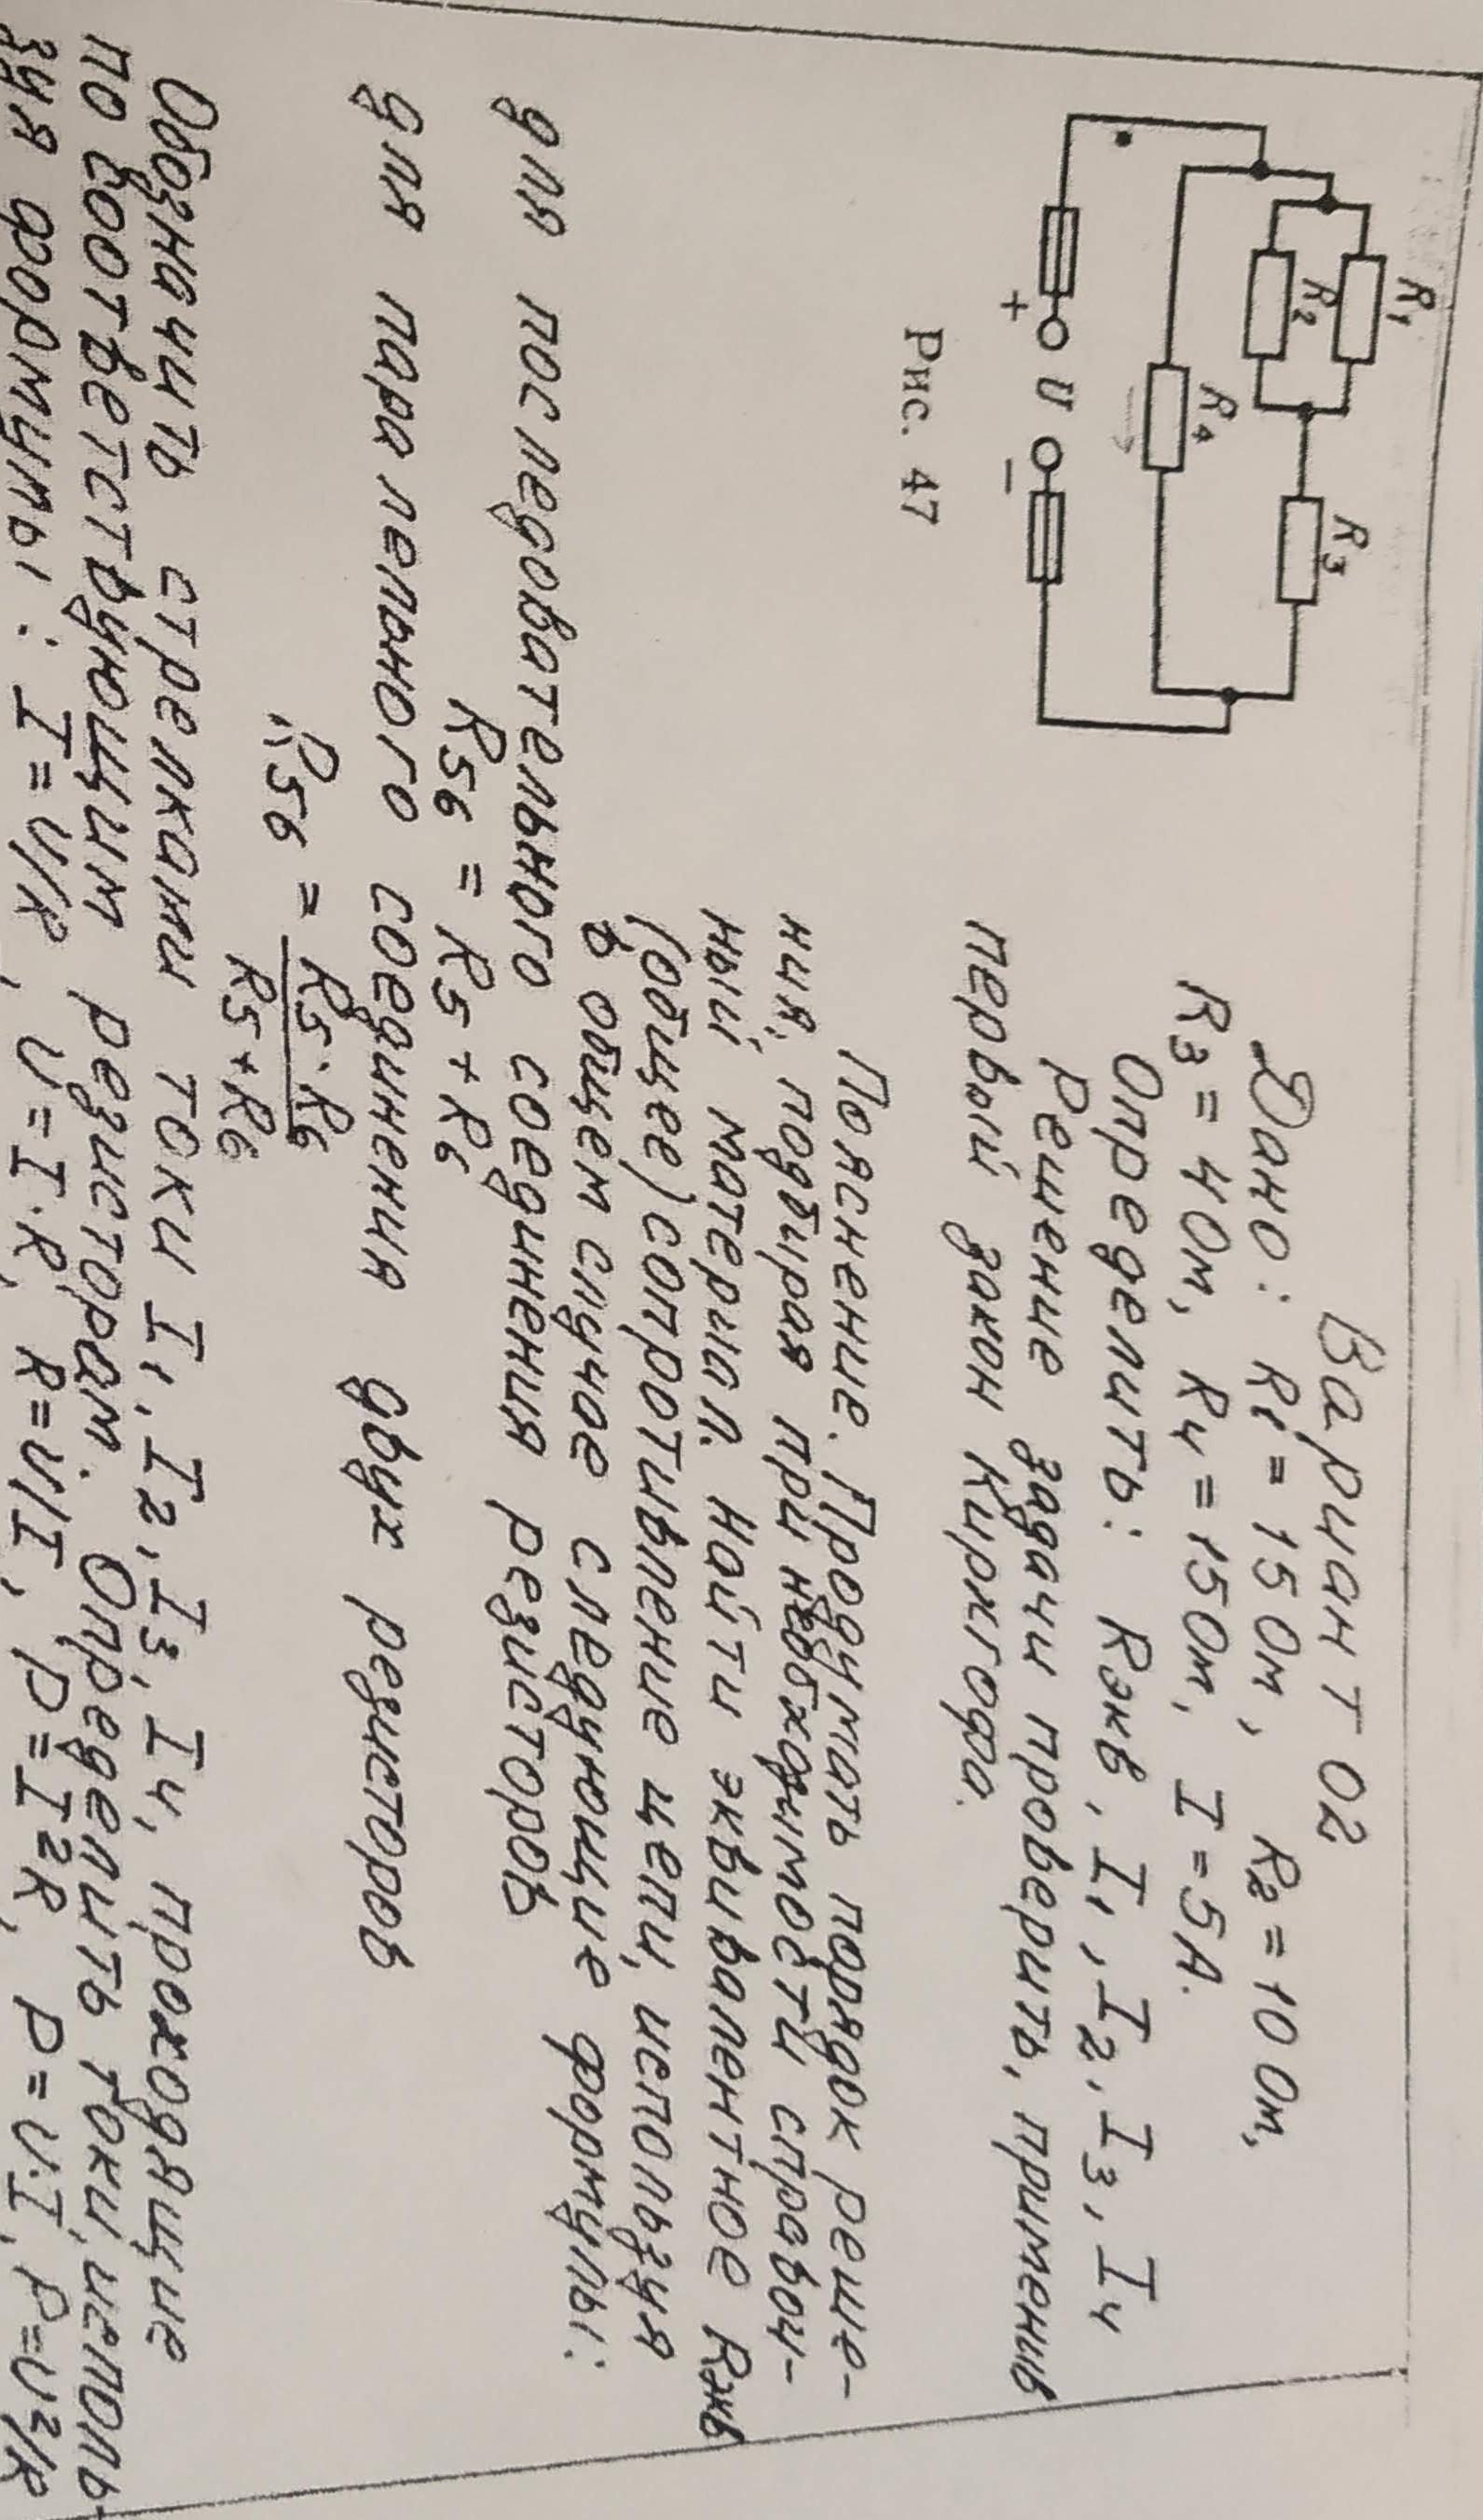 R₁
R₂
R₃
R₄
+
U
−
Рис. 47
Вариант 02
Дано: R₁ = 15 Ом, R₂ = 10 Ом,
R₃ = 4 Ом, R₄ = 15 Ом, I = 5А.
Определить: Rэкв, I₁, I₂, I₃, I₄
Решение задачи проверить, применив
первый закон Кирхгофа.
Пояснение. Продумать порядок реше-
ния, подбирая при необходимости справоч-
ный материал. Найти эквивалентное Rэкв
(общее) сопротивление цепи, используя
в общем случае следующие формулы:
для последовательного соединения резисторов
R₅₆ = R₅ + R₆
для параллельного соединения двух резисторов
R₅₆ = R₅·R₆ / R₅+R₆
Обозначить стрелками токи I₁, I₂, I₃, I₄, проходящие
по соответствующим резисторам. Определить токи, исполь-
зуя формулы: I = U/R, U = I·R, R = U/I, P = I²R, P = U·I, P = U²/R